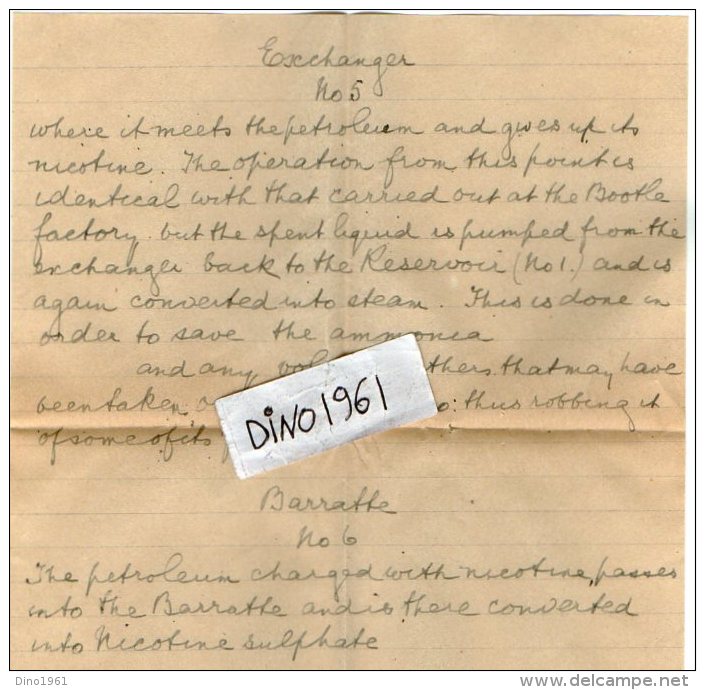 Exchanger
No 5
where it meets the petroleum and gives up its
nicotine. The operation from this point is
identical with that carried out at the Bootle
factory but the spent liquid is pumped from the
exchanger back to the Reservoir (No 1.) and is
again converted into steam. This is done in
order to save the ammonia
and any that may have
been taken thus robbing it
of some of its
DiNO1961
Barratte
No 6
The petroleum charged with nicotine, passes
into the Barratte and is there converted
into Nicotine sulphate
Dino1961
delcampe.net